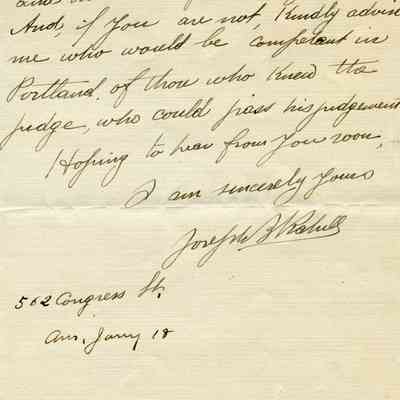 And, if you are not, kindly advise
me who would be competent in
Portland. of those who knew the
judge, who could pass his judgement
Hoping to hear from you soon,
I am sincerely yours
Joseph B Kahill
562 Congress St.
Ans. Jany 18